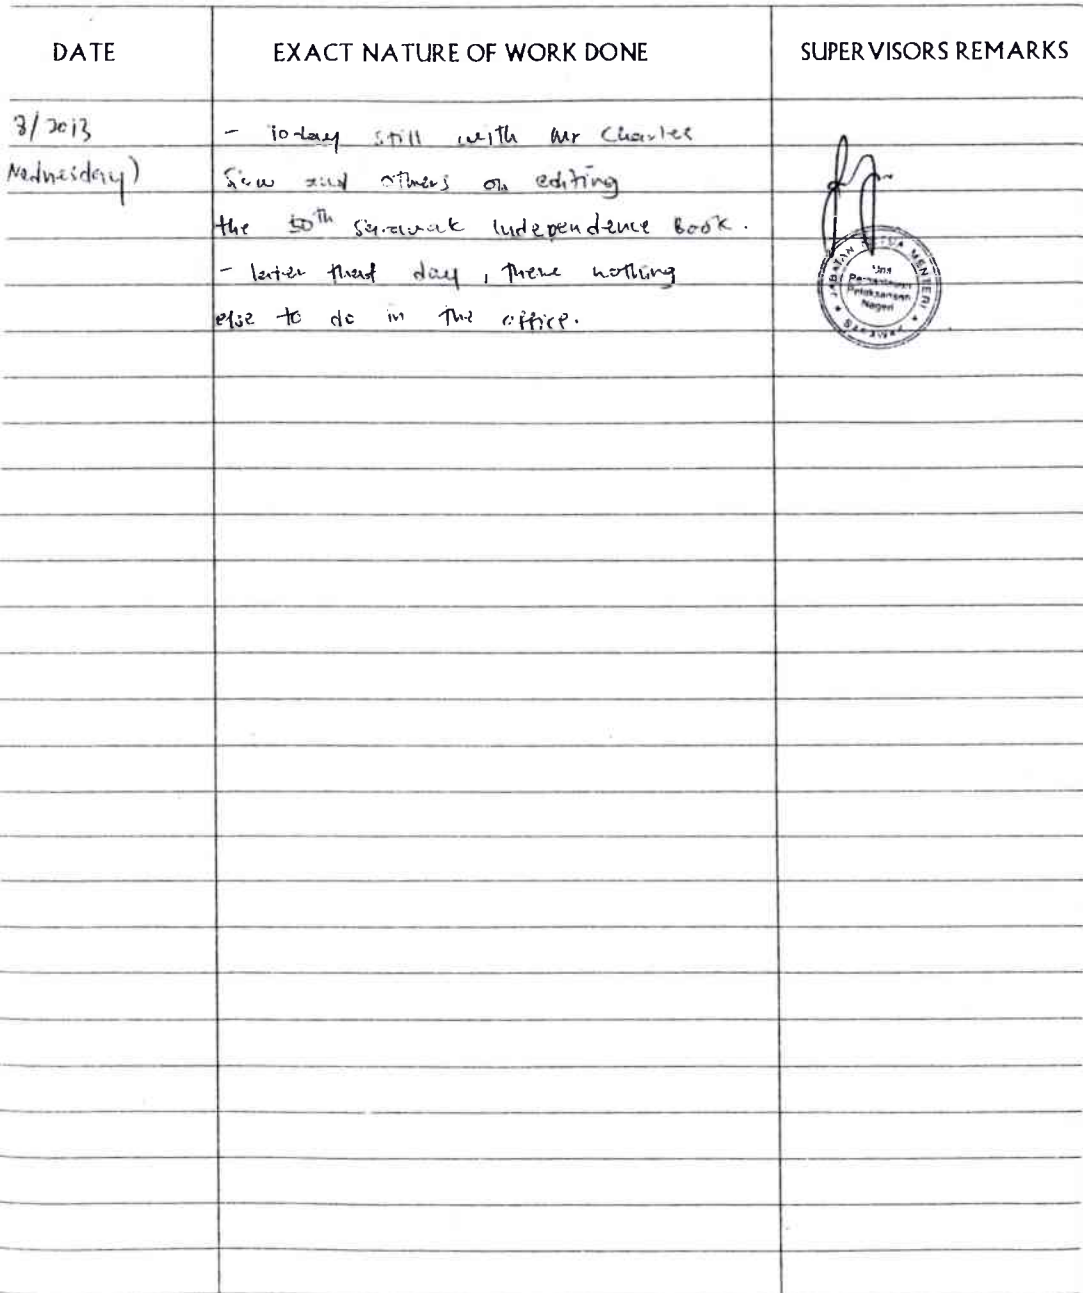 DATE
EXACT NATURE OF WORK DONE
SUPERVISORS REMARKS
3/2013
Wednesday)
- today still with Mr Charles
Siew and others on editing
the 50th Sarawak Independence Book.
- later that day, there nothing
else to do in the office.
JABATAN KETUA MENTERI
Unit
Pemantauan
Pelaksanaan
Negeri
SARAWAK